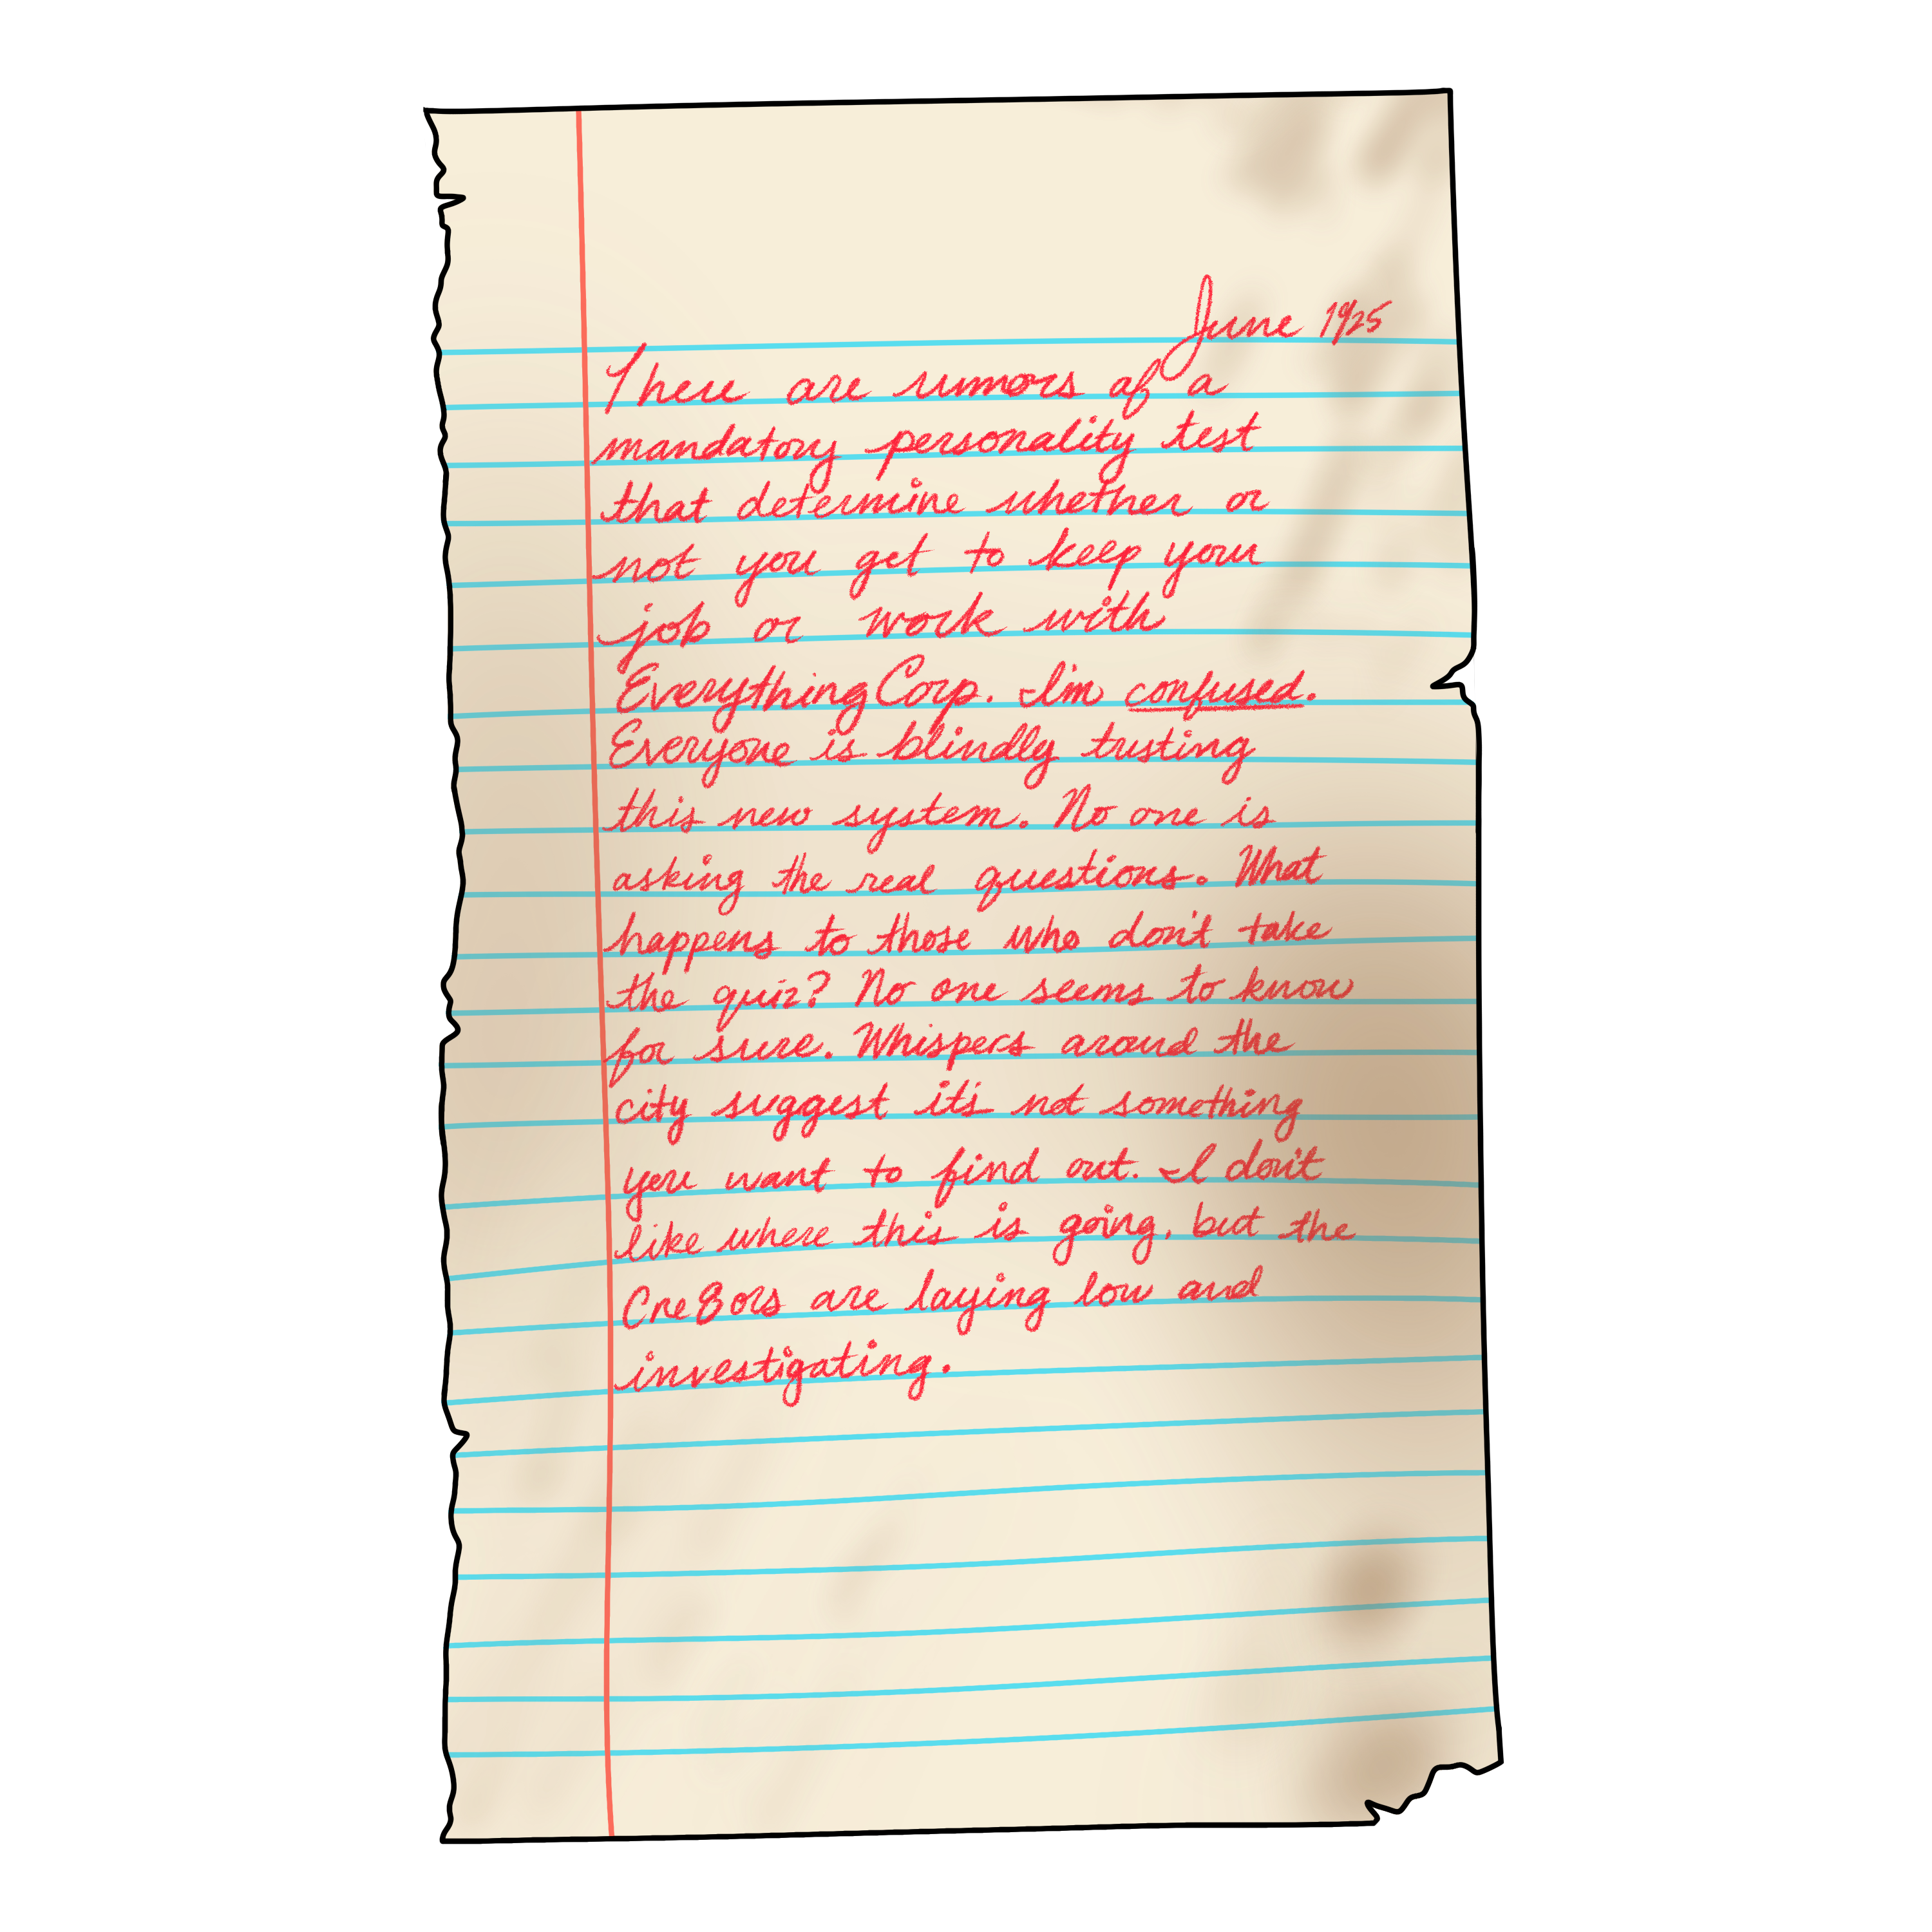 June 1925
There are rumors of a
mandatory personality test
that determine whether or
not you get to keep your
job or work with
Everything Corp. I'm confused.
Everyone is blindly trusting
this new system. No one is
asking the real questions. What
happens to those who don't take
the quiz? No one seems to know
for sure. Whispers around the
city suggest it's not something
you want to find out. I don't
like where this is going, but the
Cre8ors are laying low and
investigating.